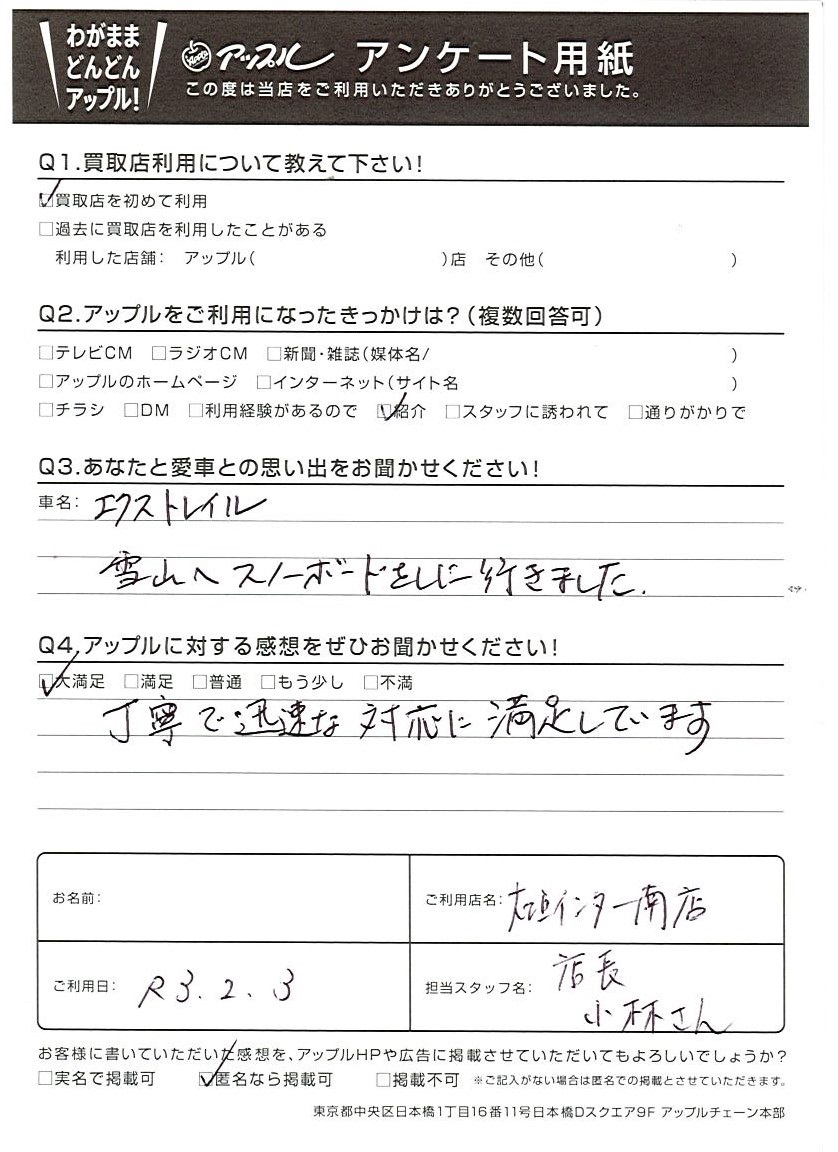 わがまま
どんどん
アップル!
Apple アップル アンケート用紙
この度は当店をご利用いただきありがとうございました。
Q1.買取店利用について教えて下さい!
☑買取店を初めて利用
□過去に買取店を利用したことがある
利用した店舗: アップル( )店 その他( )
Q2.アップルをご利用になったきっかけは?(複数回答可)
□テレビCM □ラジオCM □新聞・雑誌(媒体名/ )
□アップルのホームページ □インターネット(サイト名 )
□チラシ □DM □利用経験があるので ☑紹介 □スタッフに誘われて □通りがかりで
Q3.あなたと愛車との思い出をお聞かせください!
車名: エクストレイル
雪山へスノーボードをしに行きました.
Q4.アップルに対する感想をぜひお聞かせください!
☑大満足 □満足 □普通 □もう少し □不満
丁寧で迅速な対応に満足しています
お名前:
ご利用店名: 大垣インター南店
ご利用日: R3.2.3
担当スタッフ名: 店長
小林さん
お客様に書いていただいた感想を、アップルHPや広告に掲載させていただいてもよろしいでしょうか?
□実名で掲載可 ☑匿名なら掲載可 □掲載不可 ※ご記入がない場合は匿名での掲載とさせていただきます。
東京都中央区日本橋1丁目16番11号日本橋Dスクエア9F アップルチェーン本部